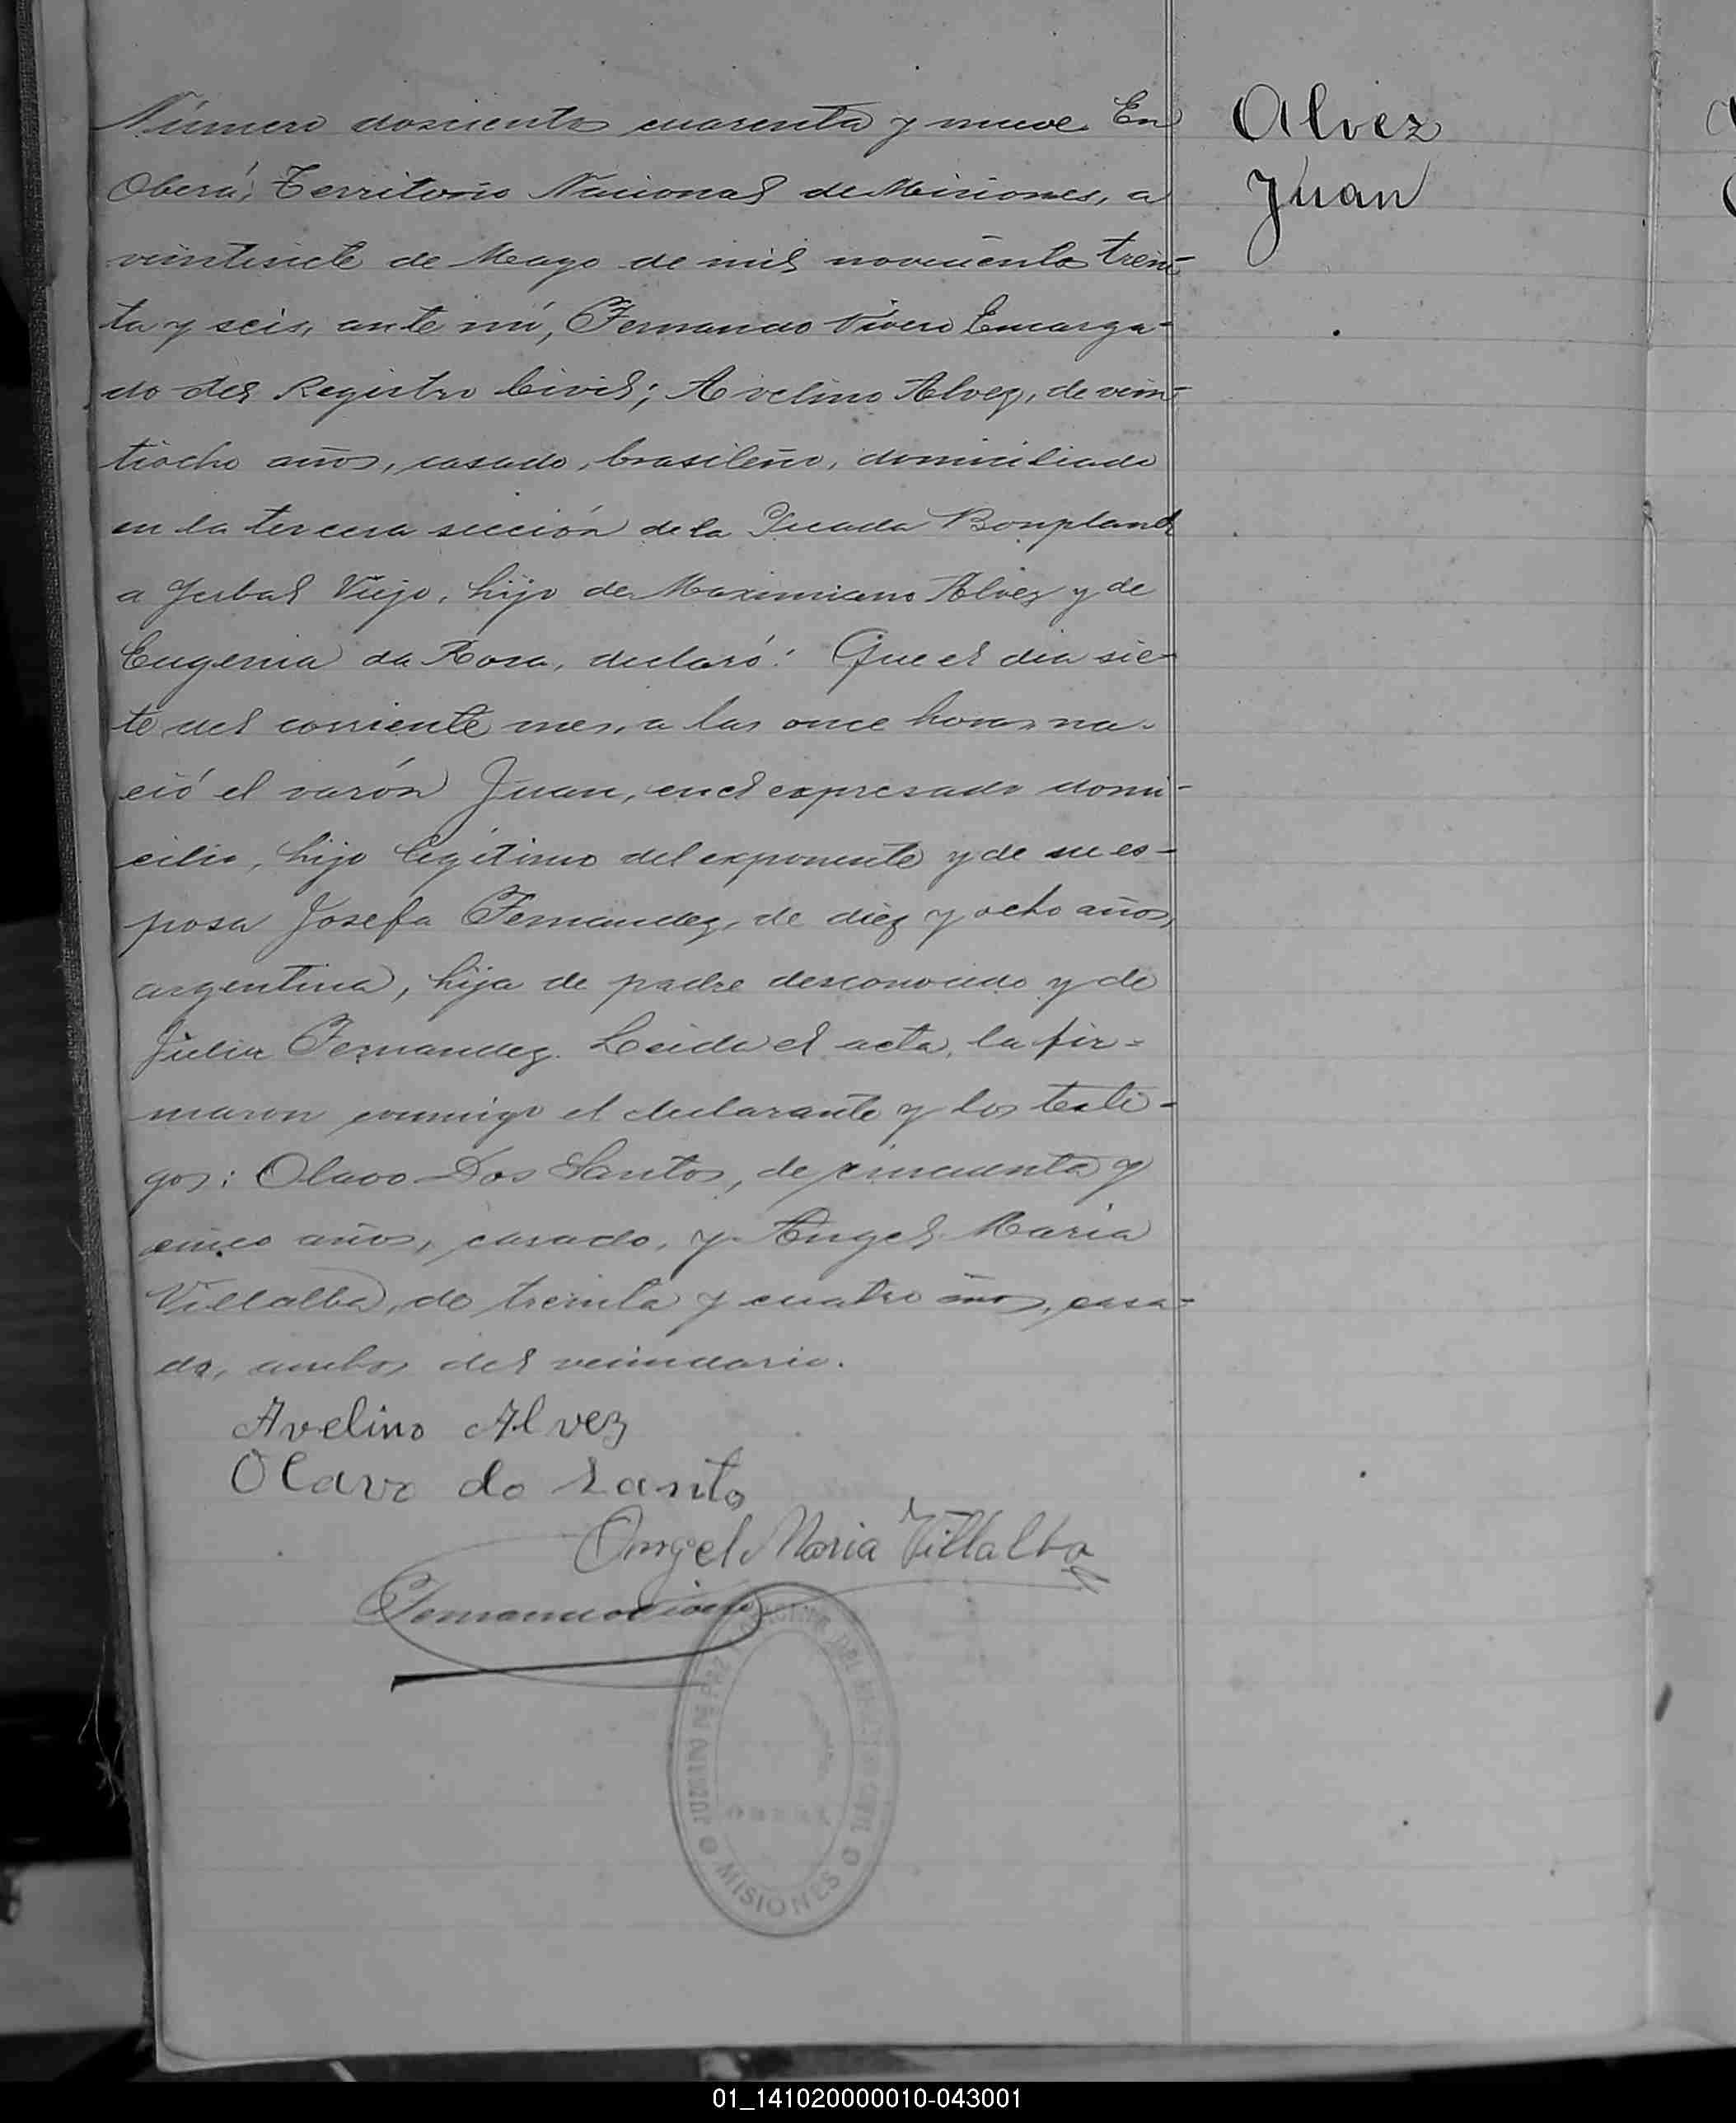 Número doscientos cuarenta y nueve. En
Oberá, Territorio Nacional de Misiones, a
veintisiete de Mayo de mil novecientos trein-
ta y seis, ante mí, Fernando Vivero Encarga-
do del Registro Civil; Avelino Alvez, de vein-
tiocho años, casado, brasileño, domiciliado
en la tercera sección de la Picada Bonpland
a Yerbal Viejo, hijo de Maximiano Alvez y de
Eugenia da Rosa, declaró: Que el dia sie-
te del corriente mes, a las once horas na-
ció el varón Juan, en el expresado domi-
cilio, hijo legítimo del exponente y de su es-
posa Josefa Fernandez, de diez y ocho años,
argentina, hija de padre desconocido y de
Julia Fernandez. Leida el acta, la fir-
maron conmigo el declarante y los testi-
gos: Olavo Dos Santos, de cincuenta y
cinco años, casado, y Angel Maria
Villalba, de treinta y cuatro años, casa-
do, ambos del vecindario.
Avelino Alvez
Olavo do Santo
Angel Maria Villalba
Alvez
Juan
JUZGADO DE PAZ
DEL CIVIL
OBERA
MISIONES
01_141020000010-043001